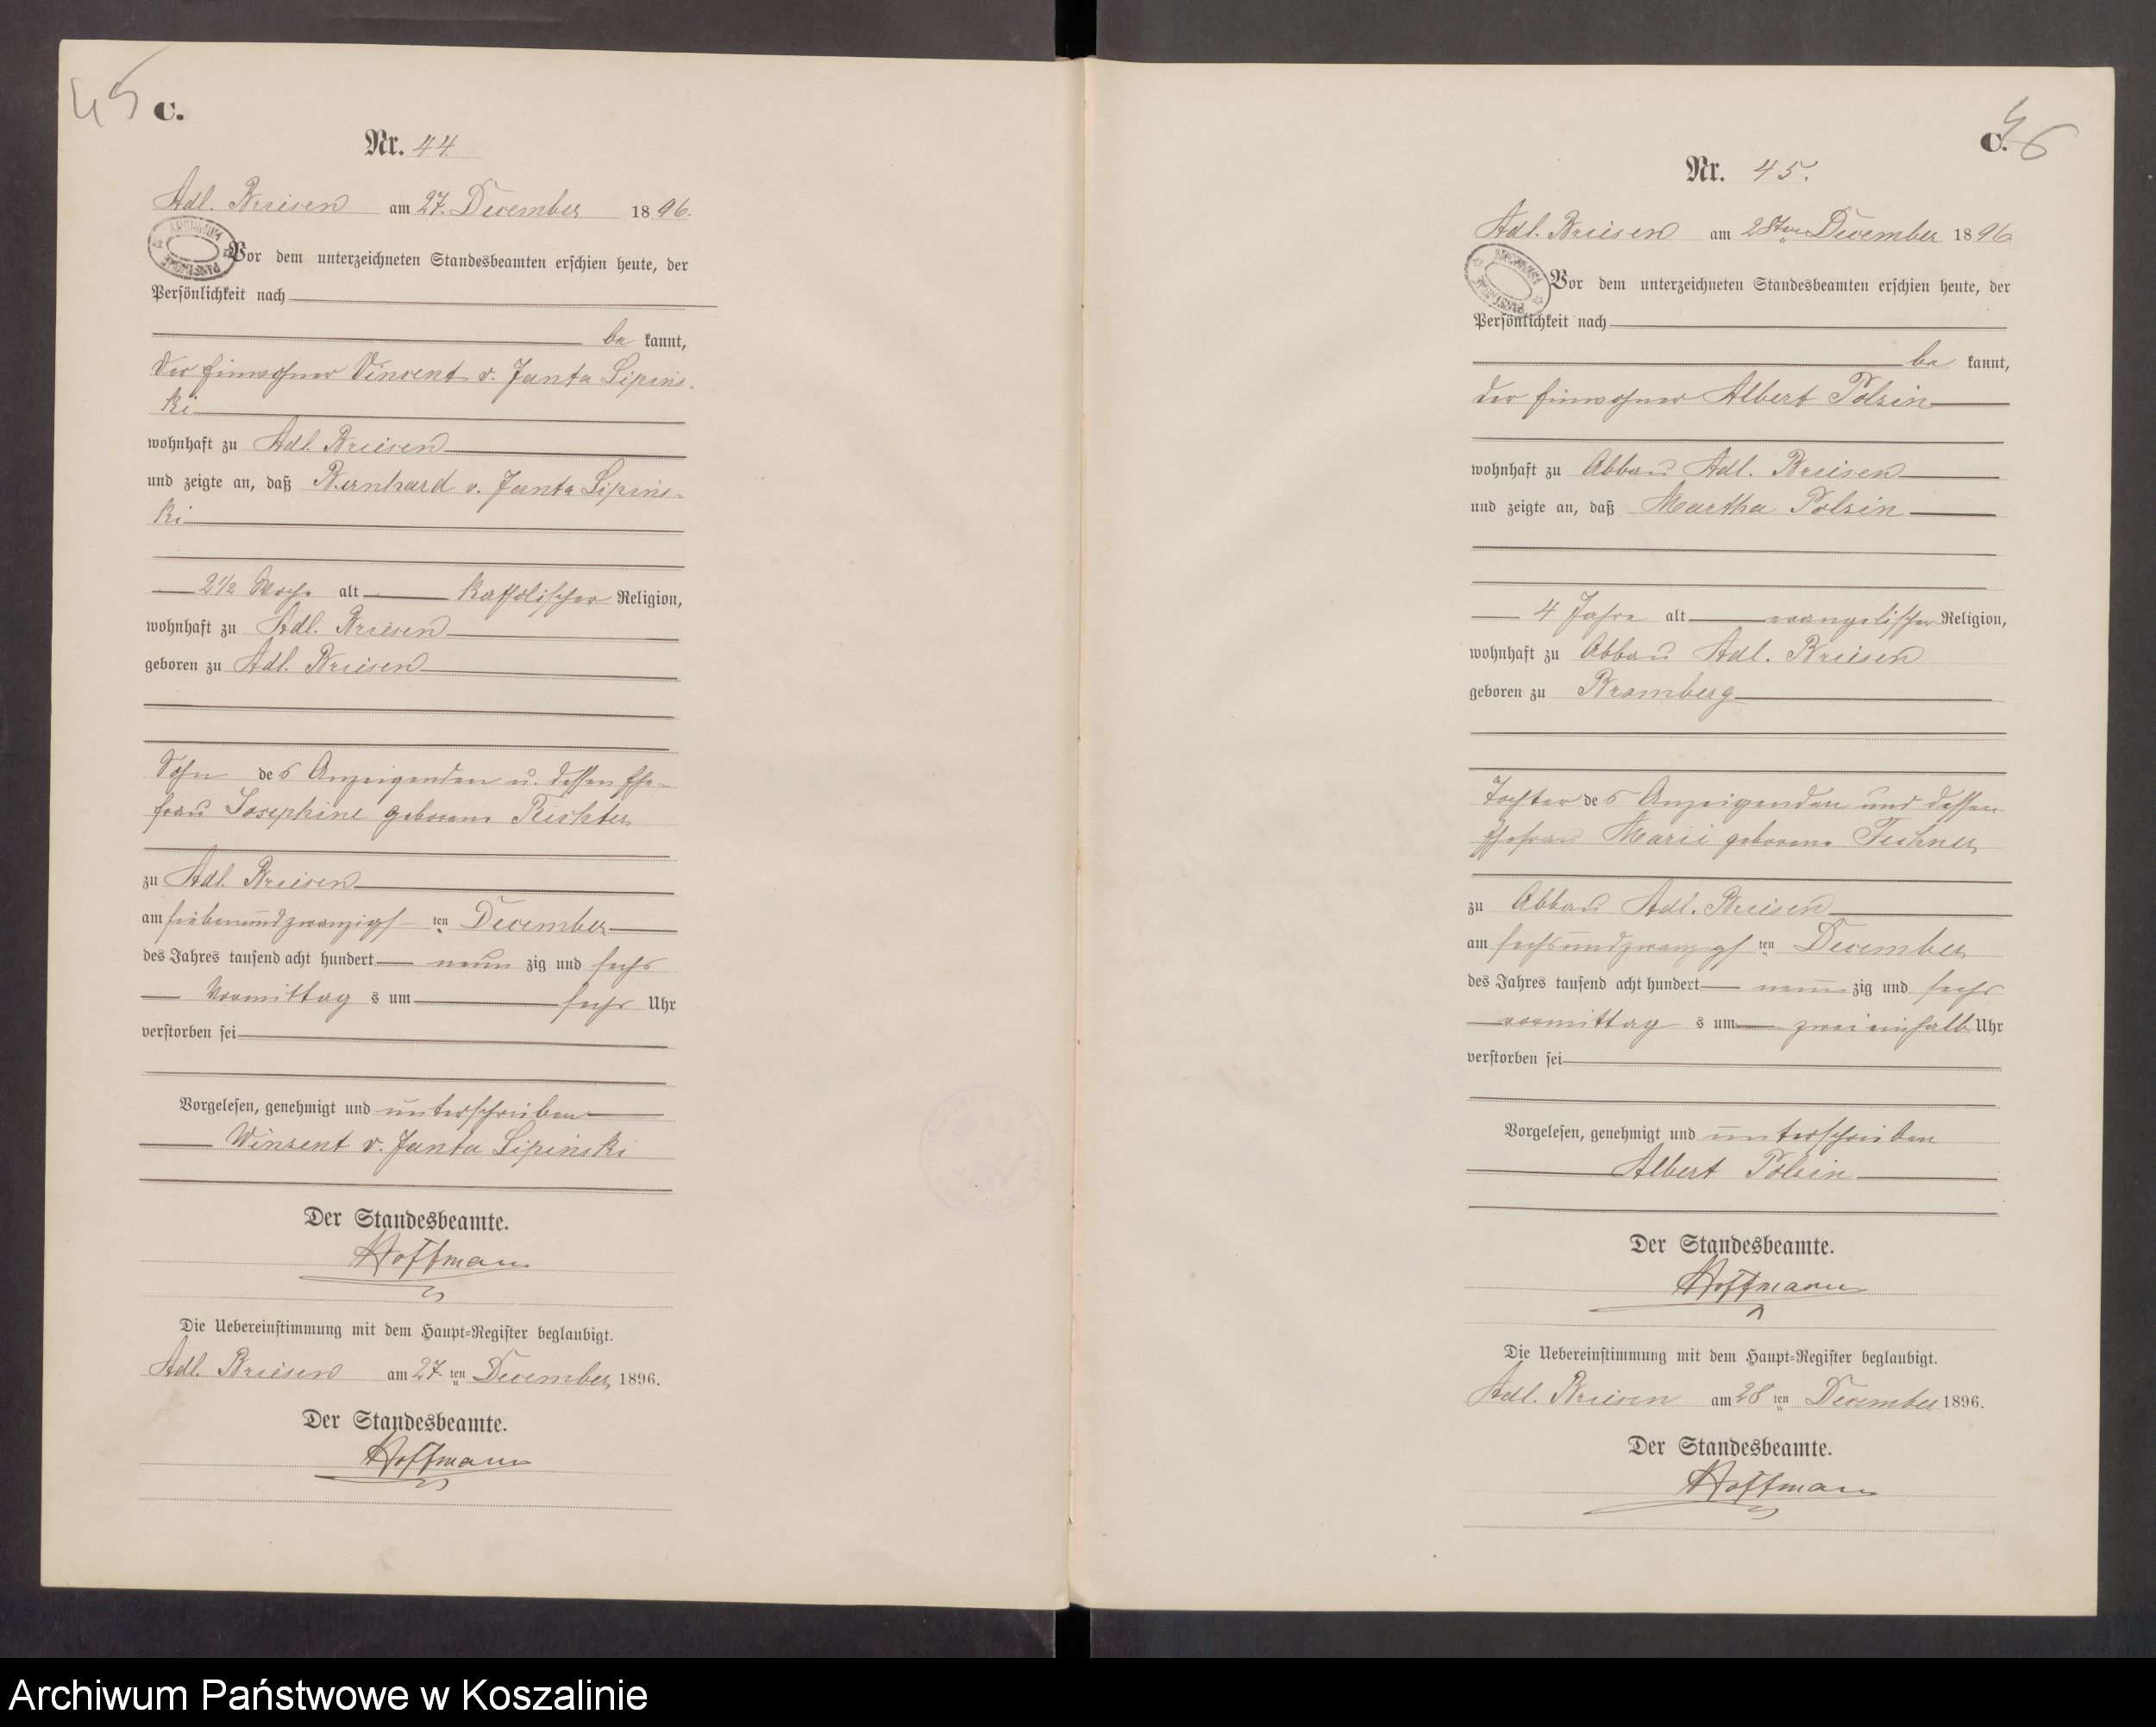 45
C.
Nr. 44
Adl. Briesen am 27. December 1896.
ARCHIWUM PAŃSTWOWE
Vor dem unterzeichneten Standesbeamten erschien heute, der
Persönlichkeit nach
be kannt,
der Einwohner Vincent v. Janta Lipins-
ki
wohnhaft zu Adl. Briesen
und zeigte an, daß Bernhard v. Janta Lipins-
ki
2 1/2 Woche alt katholischer Religion,
wohnhaft zu Adl. Briesen
geboren zu Adl. Briesen
Sohn des Anzeigenden u. dessen Ehe-
frau Josephine geborene Richter
zu Adl. Briesen
am siebenundzwanzigsten December
des Jahres tausend acht hundert neunzig und sechs
Vormittags um sechs Uhr
verstorben sei
Vorgelesen, genehmigt und unterschrieben
Winzent v. Janta Lipinski
Der Standesbeamte.
Hoffmann
Die Uebereinstimmung mit dem Haupt-Register beglaubigt.
Adl. Briesen am 27.ten December 1896.
Der Standesbeamte.
Hoffmann
46
C.
Nr. 45.
Adl. Briesen am 28ten December 1896
ARCHIWUM PAŃSTWOWE
Vor dem unterzeichneten Standesbeamten erschien heute, der
Persönlichkeit nach
be kannt,
der Einwohner Albert Polzin
wohnhaft zu Abbau Adl. Briesen
und zeigte an, daß Martha Polzin
4 Jahre alt evangelischer Religion,
wohnhaft zu Abbau Adl. Briesen
geboren zu Bromberg
Tochter des Anzeigenden und dessen
Ehefrau Marie geborene Fechner
zu Abbau Adl. Briesen
am sechsundzwanzigsten December
des Jahres tausend acht hundert neunzig und sechs
vormittags um zweieinhalb Uhr
verstorben sei
Vorgelesen, genehmigt und unterschrieben
Albert Polzin
Der Standesbeamte.
Hoffmann
Die Uebereinstimmung mit dem Haupt-Register beglaubigt.
Adl. Briesen am 28ten December 1896.
Der Standesbeamte.
Hoffmann
Archiwum Państwowe w Koszalinie